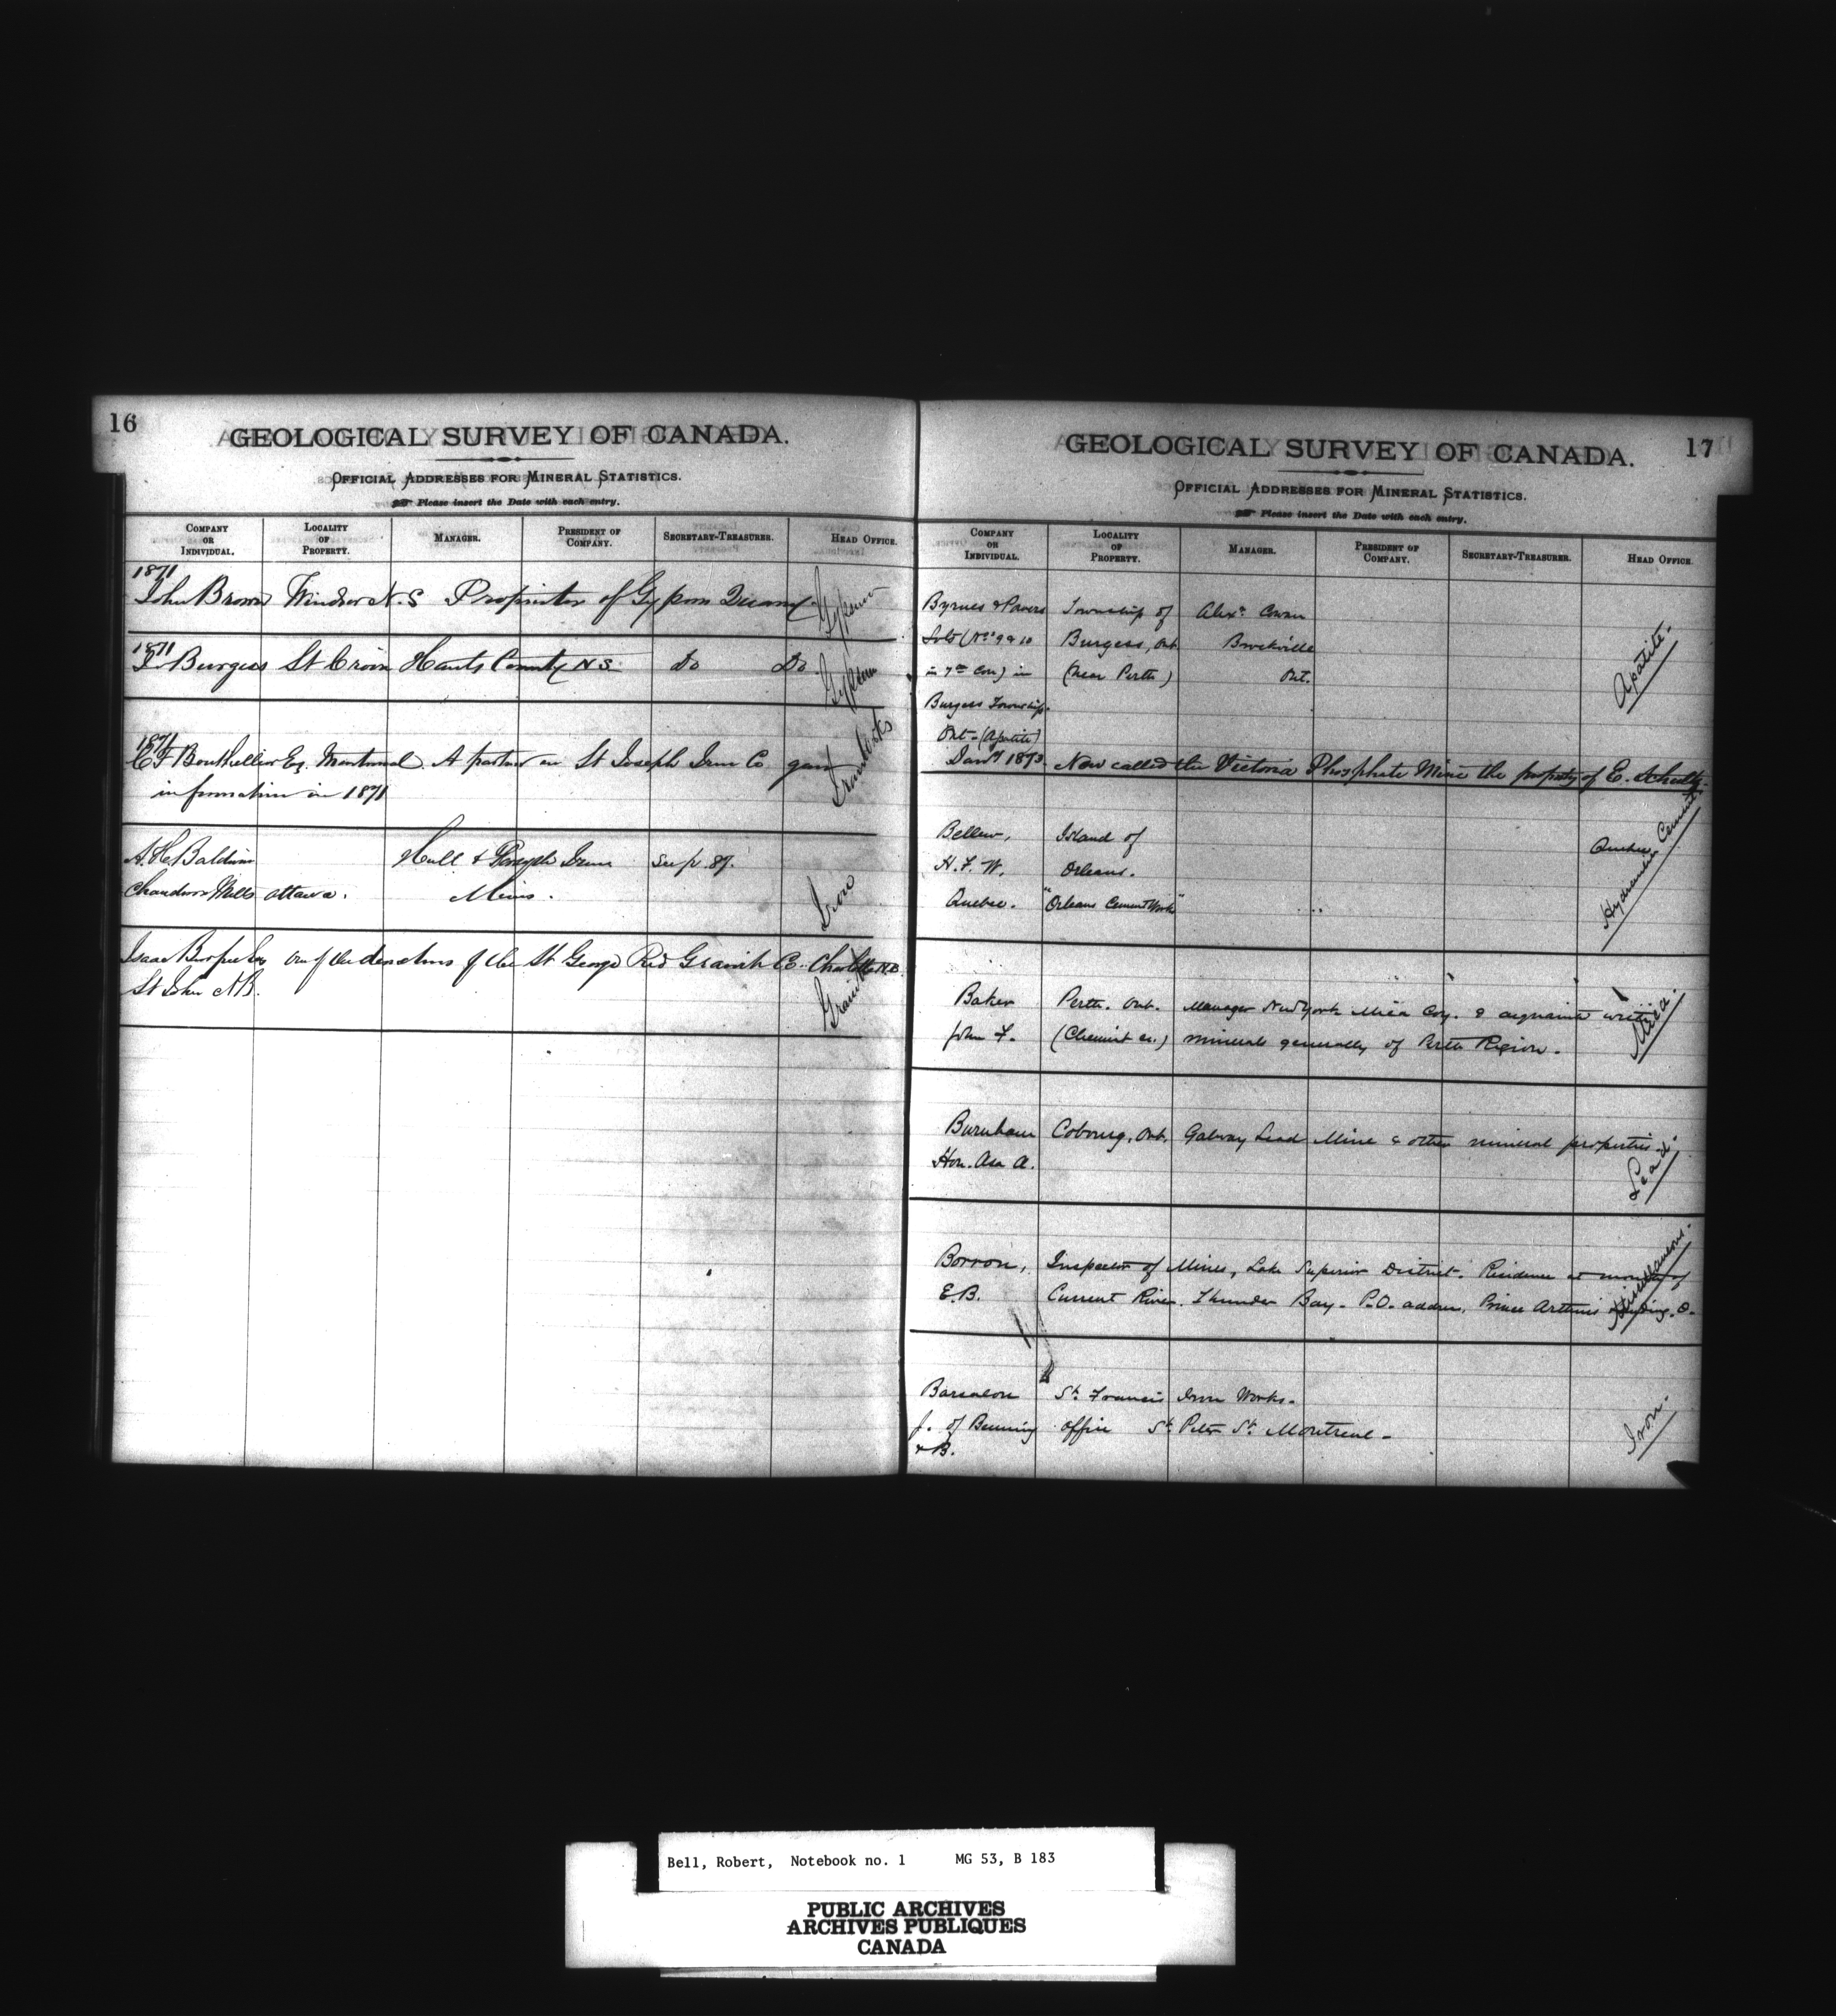 16
GEOLOGICAL SURVEY OF CANADA.
OFFICIAL ADDRESSES FOR MINERAL STATISTICS.
Please insert the Date with each entry.
COMPANY OR INDIVIDUAL.
LOCALITY OF PROPERTY.
MANAGER.
PRESIDENT OF COMPANY.
SECRETARY-TREASURER.
HEAD OFFICE.
1871
John Brown Windsor N.S Proprietor of Gypsum Quarry Gypsum
1871
J. Burgess St Croix Hants County N S Do Do Gypsum
1871
E F Bouthellier Eq. Montreal. A partner in St Joseph Iron Co gave
information in 1871
A. H. Baldwin Hull & Forsyth Iron Sep/. 87.
Chaudiere Mills Ottawa. Mines. Iron
Isaac Burpee Esq One of the directors of the St George Red Granite Co. Charlotte N.B.
St John N B. Granite
17
GEOLOGICAL SURVEY OF CANADA.
OFFICIAL ADDRESSES FOR MINERAL STATISTICS.
Please insert the Date with each entry.
COMPANY OR INDIVIDUAL.
LOCALITY OF PROPERTY.
MANAGER.
PRESIDENT OF COMPANY.
SECRETARY-TREASURER.
HEAD OFFICE
Byrnes & Powers Township of Alexr. Cowan
Lots (Nos 9 & 10 Burgess, Ont Brockville
in 7th Con) in (Near Perth) Ont. Apatite.
Burgess Township.
Ont - (Apatite)
Jany 1873 Now called the Victoria Phosphate Mine the property of E. Schultz.
Bellew, Island of Quebec
H. F. W. Orleans. Hydraulic Cement.
Quebec. "Orleans Cement Work"
Baker Perth. Ont. Manager New York Mica Coy. & acquaint with
John F. (Chemist &c.) minerals generally of Perth Region. Mica.
Burnham Cobourg, Ont. Galway Lead Mine & other mineral properties.
Hon. Asa A. Lead.
Borron, Inspector of Mines, Lake Superior District. Residence at mouth of
E.B. Current River. Thunder Bay. P.O. address, Prince Arthurs Landing. O.
Miscellaneous.
Barsalou St. Francis Iron Works.
J. of Benning office St. Peter St. Montreal - Iron.
& B.
Bell, Robert, Notebook no. 1 MG 53, B 183
PUBLIC ARCHIVES
ARCHIVES PUBLIQUES
CANADA